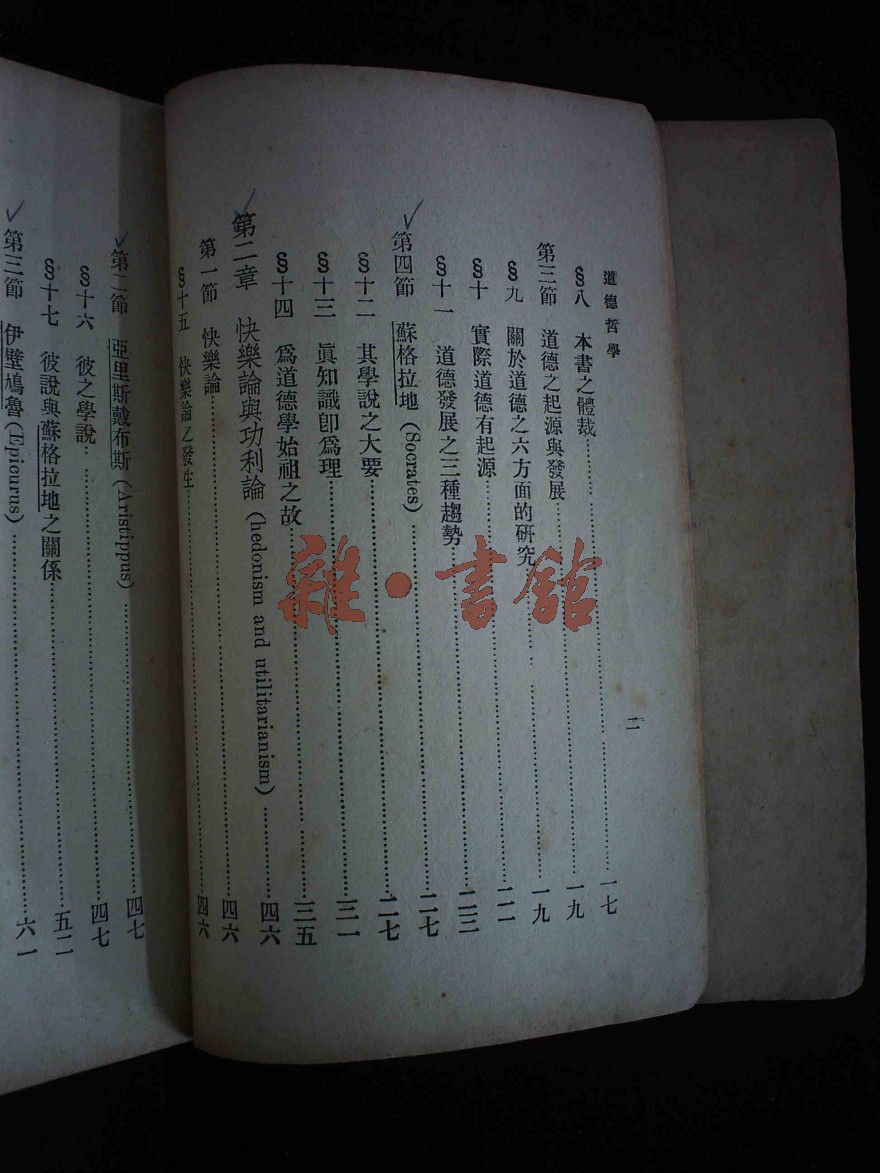 道德哲學
§八　本書之體裁……一七
第三節　道德之起源與發展……一九
§九　關於道德之六方面的研究……一九
§十　實際道德有起源……二一
§十一　道德發展之三種趨勢……二三
第四節　蘇格拉地(Socrates)……二七
§十二　其學說之大要……二七
§十三　眞知識卽爲理……三一
§十四　爲道德學始祖之故……三五
第二章　快樂論與功利論(hedonism and utilitarianism)……四六
第一節　快樂論……四六
§十五　快樂論之發生……四六
二
第二節　亞里斯戴布斯(Aristippus)……四七
§十六　彼之學說……四七
§十七　彼說與蘇格拉地之關係……五二
第三節　伊壁鳩魯(Epicurus)……六一
雜·書館